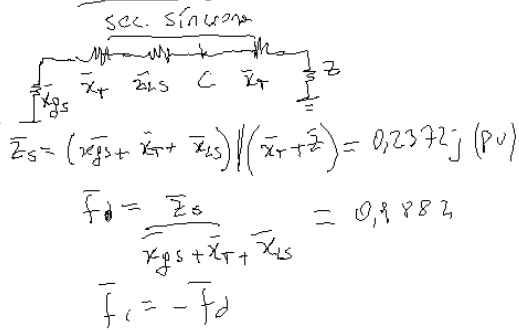 sec. sincrona
x̄gs x̄T z̄LS C x̄T z̄
Z̄s = (x̄gs + x̄T + x̄LS) // (x̄T + Z̄) = 0,2372j (pu)
f̄d = Z̄s / (x̄gs + x̄T + x̄LS) =
f̄i = - f̄d